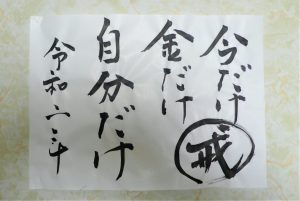 今だけ
金だけ
自分だけ
戒
令和六年